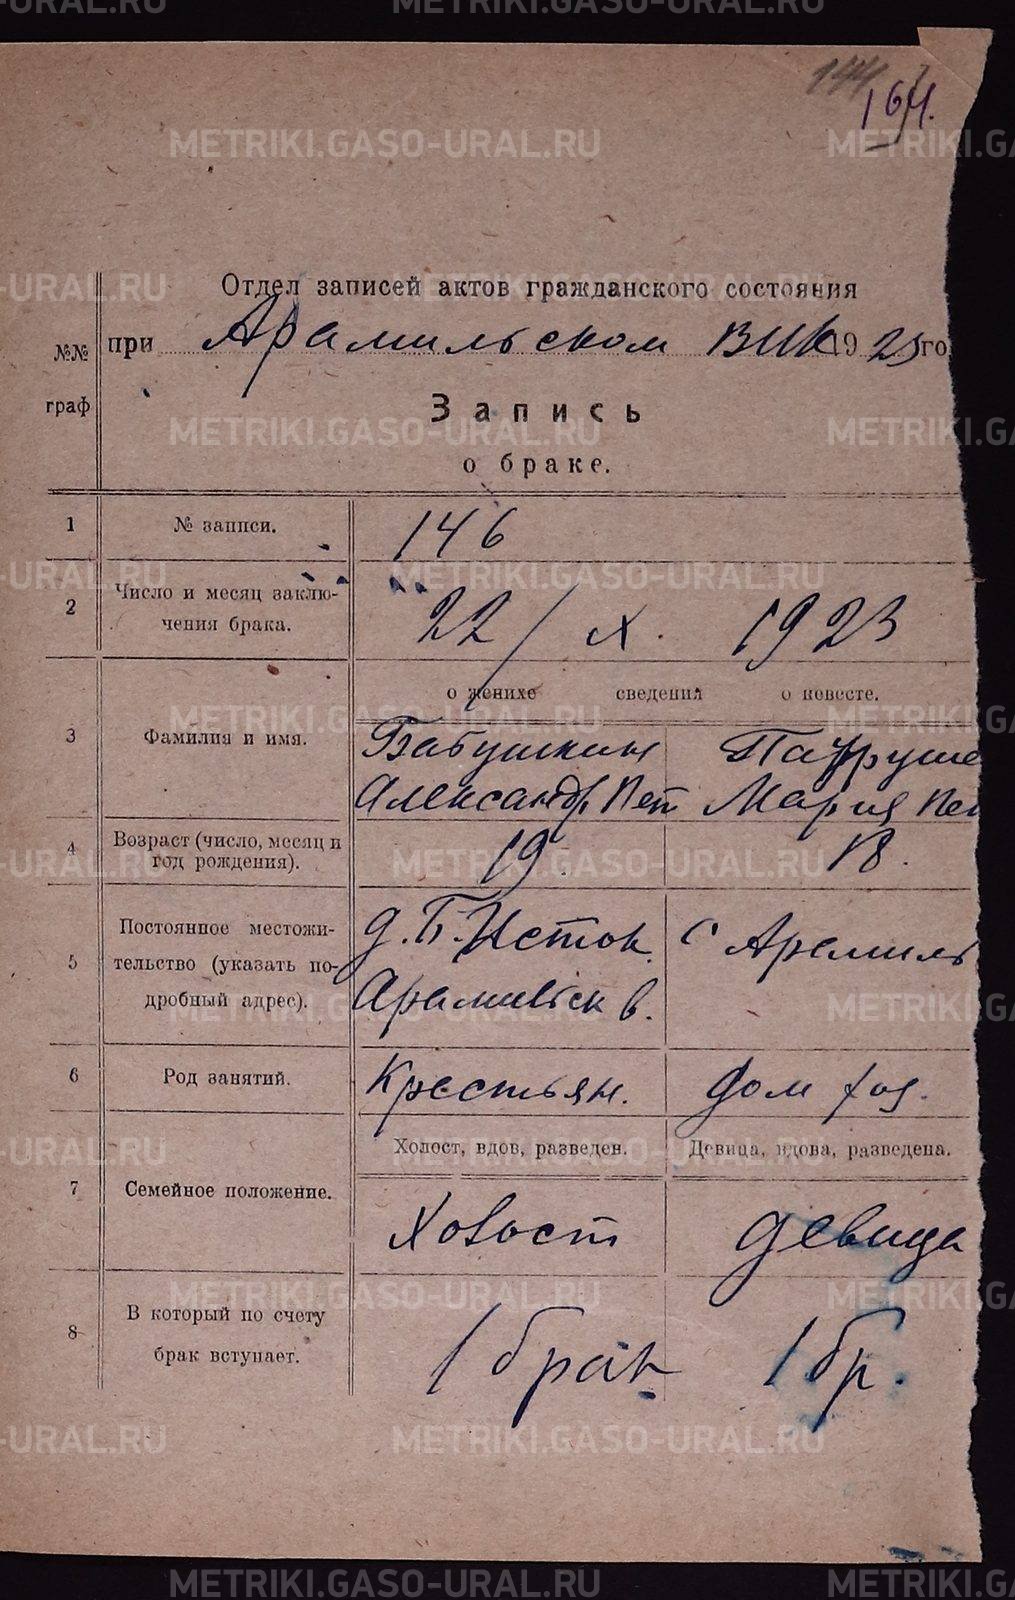 144
164.
Отдел записей актов гражданского состояния
№№ граф
при Арамильском ВИК 1923 го
Запись
о браке.
1 № записи. 146
2 Число и месяц заключения брака. 22/X. 1923
о женихе сведения о невесте.
3 Фамилия и имя. Бабушкин Патруше
Александр Пет Мария Пет
4 Возраст (число, месяц и год рождения). 19 18.
5 Постоянное местожи- д. Б. Исток. с Арамиль
тельство (указать по- Арамильск в.
дробный адрес).
6 Род занятий. Крестьян. дом хоз.
Холост, вдов, разведен. Девица, вдова, разведена.
7 Семейное положение. Холост девица
8 В который по счету 1 брак 1 бр.
брак вступает.
METRIKI.GASO-URAL.RU